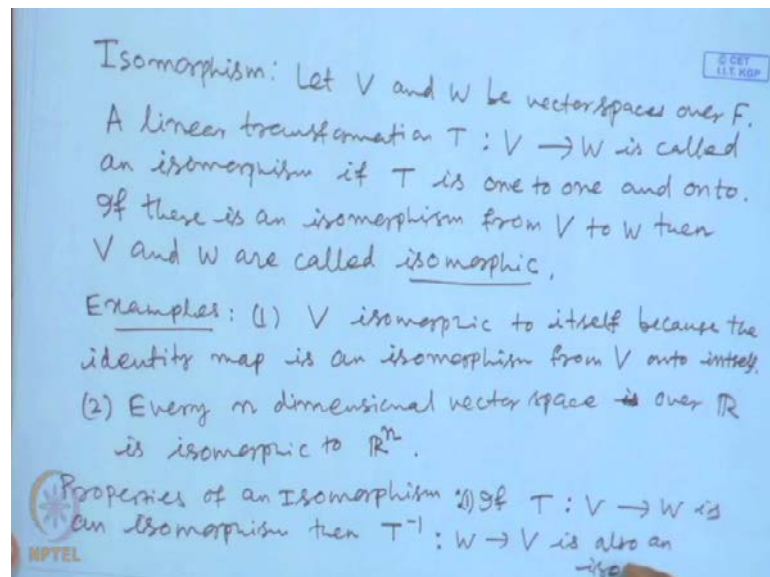 Isomorphism: Let V and W be vector spaces over F.
© CET
I.I.T. KGP
A linear transformation T : V → W is called
an isomorphism if T is one to one and onto.
If there is an isomorphism from V to W then
V and W are called isomorphic.
Examples: (1) V isomorphic to itself because the
identity map is an isomorphism from V onto intself.
(2) Every n dimensional vector space is over ℝ
is isomorphic to ℝⁿ.
Properties of an Isomorphism : 1) If T : V → W is
an isomorphism then T⁻¹ : W → V is also an
iso
NPTEL